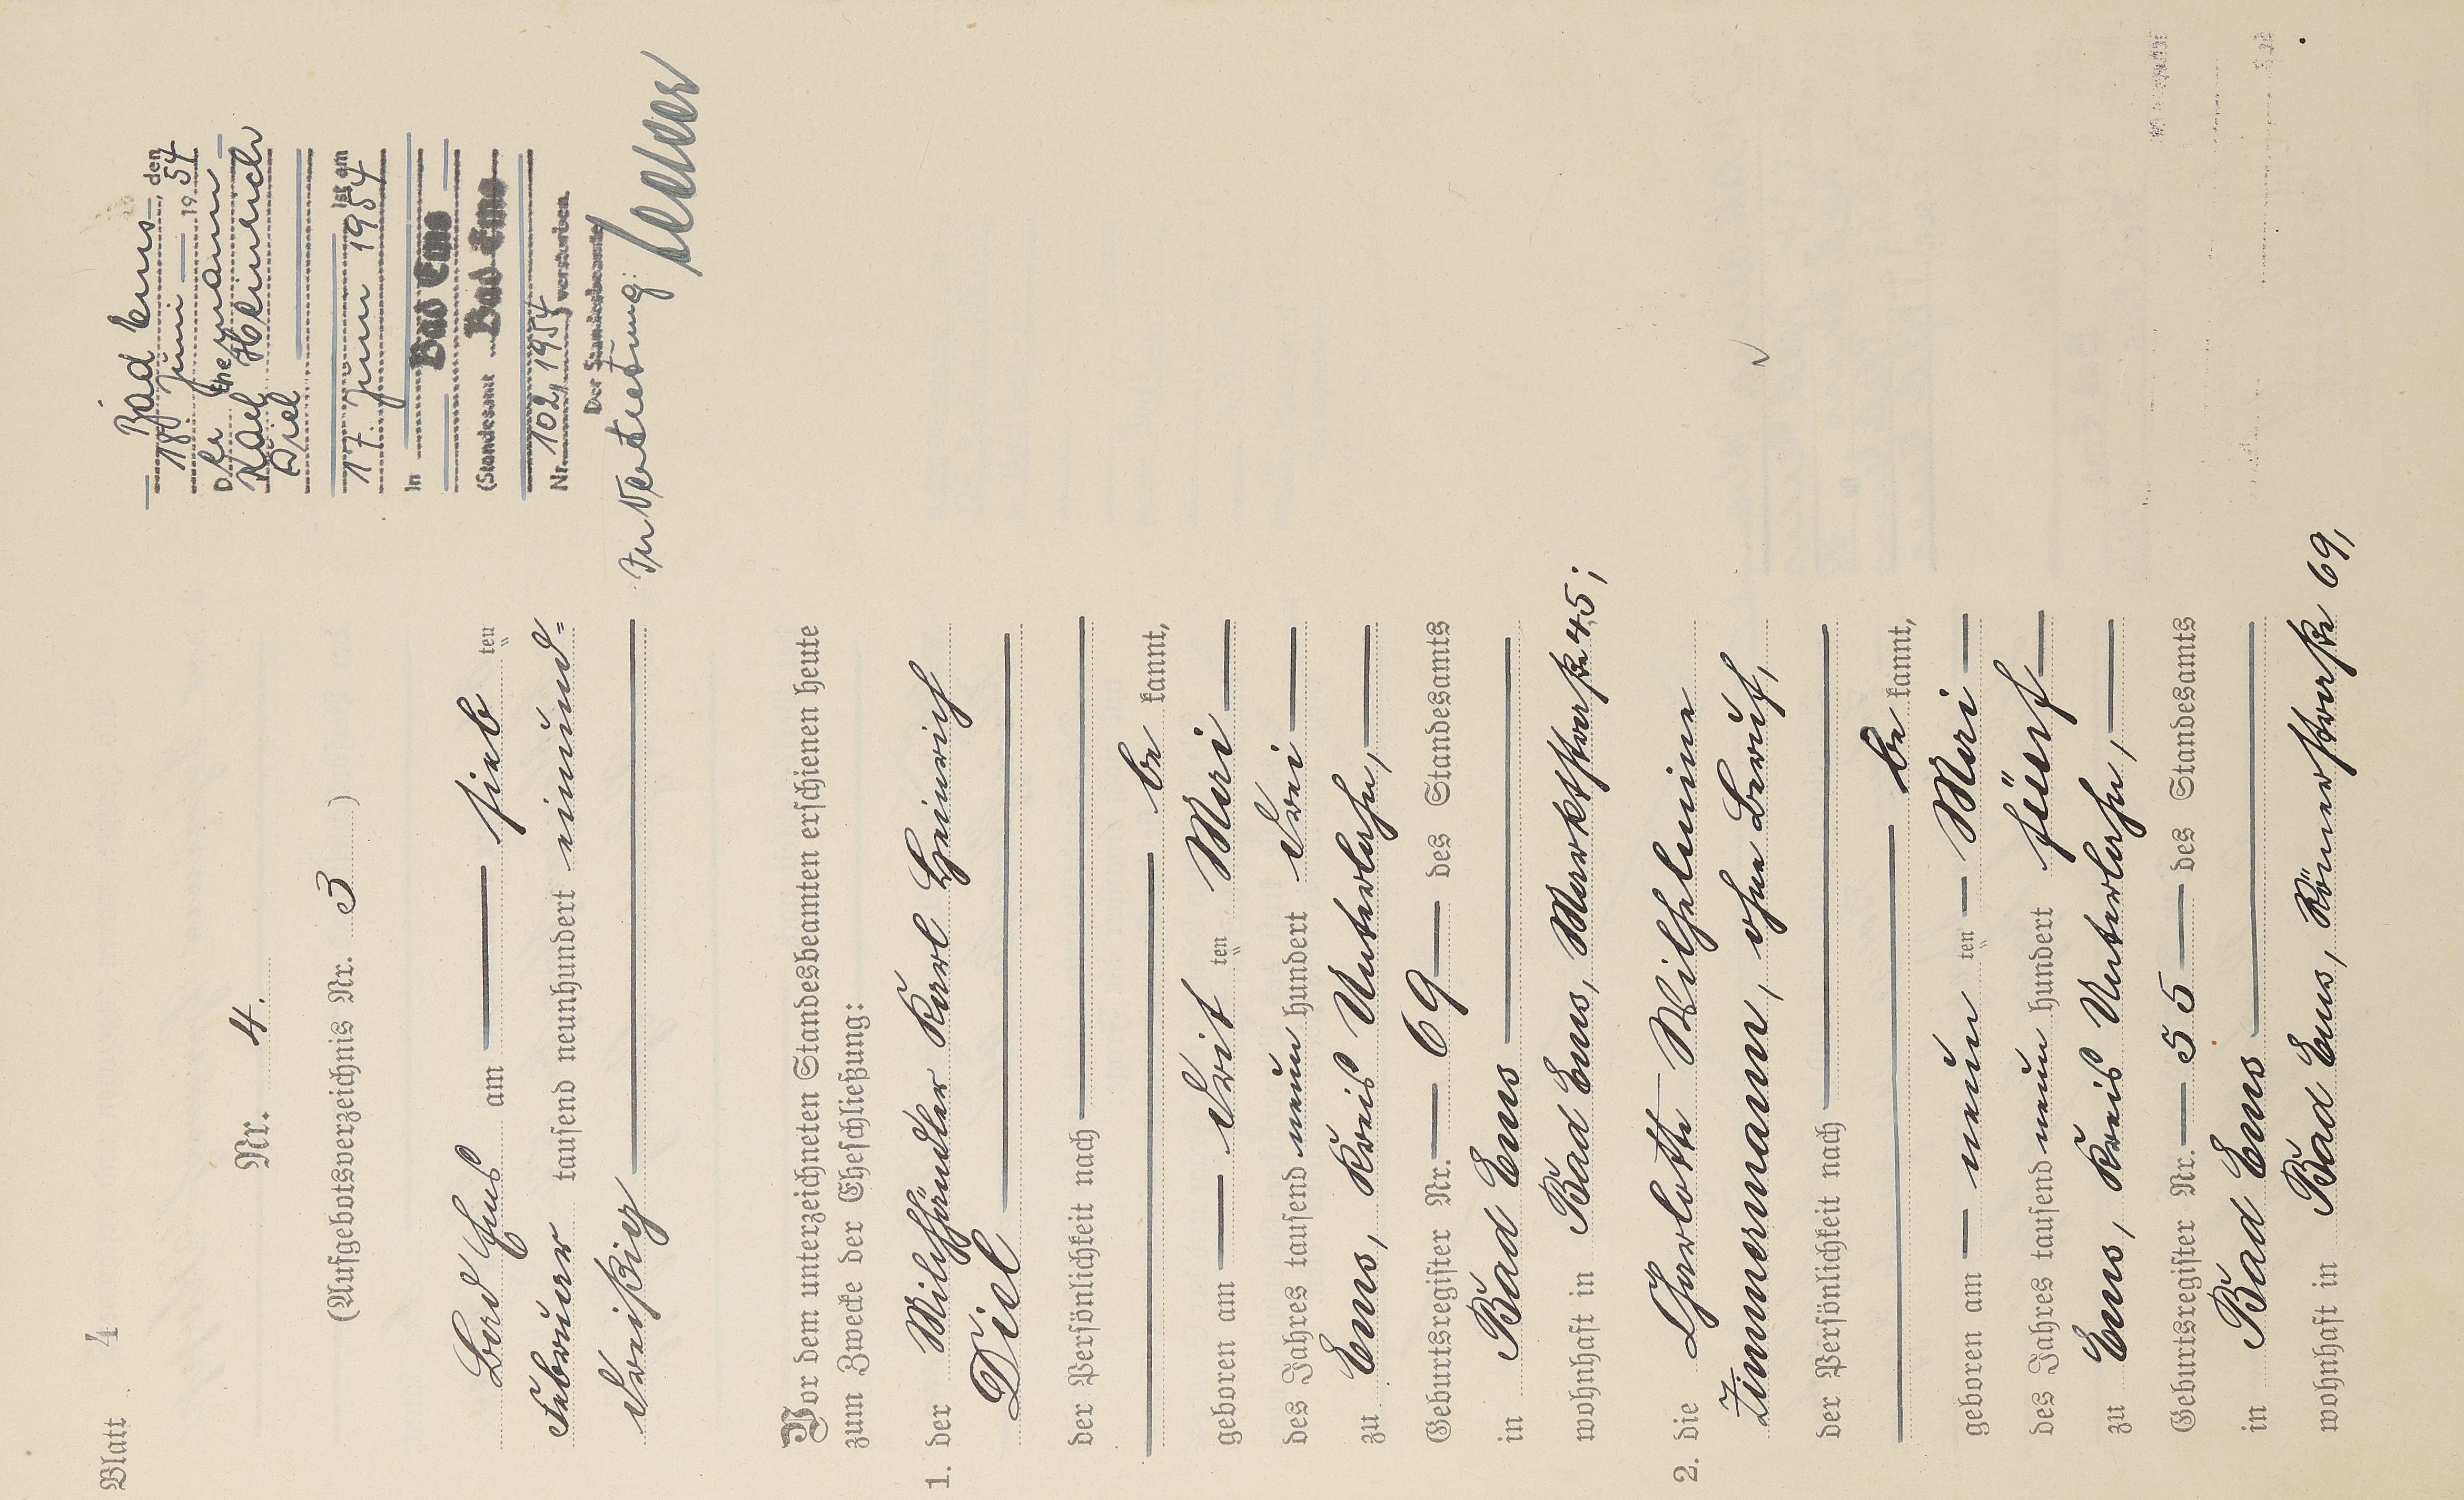 Blatt 4
Nr. 4.
(Aufgebotsverzeichnis Nr. 3)
Bad Ems am sieb ten
Februar tausend neunhundert einund=
dreißig
Vor dem unterzeichneten Standesbeamten erschienen heute
zum Zwecke der Eheschließung:
1. der Milchhändler Karl Heinrich
Diel
der Persönlichkeit nach
be kannt,
geboren am drit ten Mai
des Jahres tausend neun hundert drei
zu Ems, Kreis Unterlahn,
Geburtsregister Nr. 69 des Standesamts
in Bad Ems
wohnhaft in Bad Ems, Marktstraße 45;
2. die Charlotte Wilhelmine
Zimmermann, ohne Beruf,
der Persönlichkeit nach
be kannt,
geboren am neun ten Mai
des Jahres tausend neun hundert fünf
zu Ems, Kreis Unterlahn,
Geburtsregister Nr. 55 des Standesamts
in Bad Ems
wohnhaft in Bad Ems, Römerstraße 69,
Bad Ems, den
18. Juni 1954
Der Ehemann
Karl Heinrich
Diel
ist am
17. Juni 1954
in Bad Ems
(Standesamt Bad Ems
Nr. 102/1954) verstorben.
Der Standesbeamte
In Vertretung: